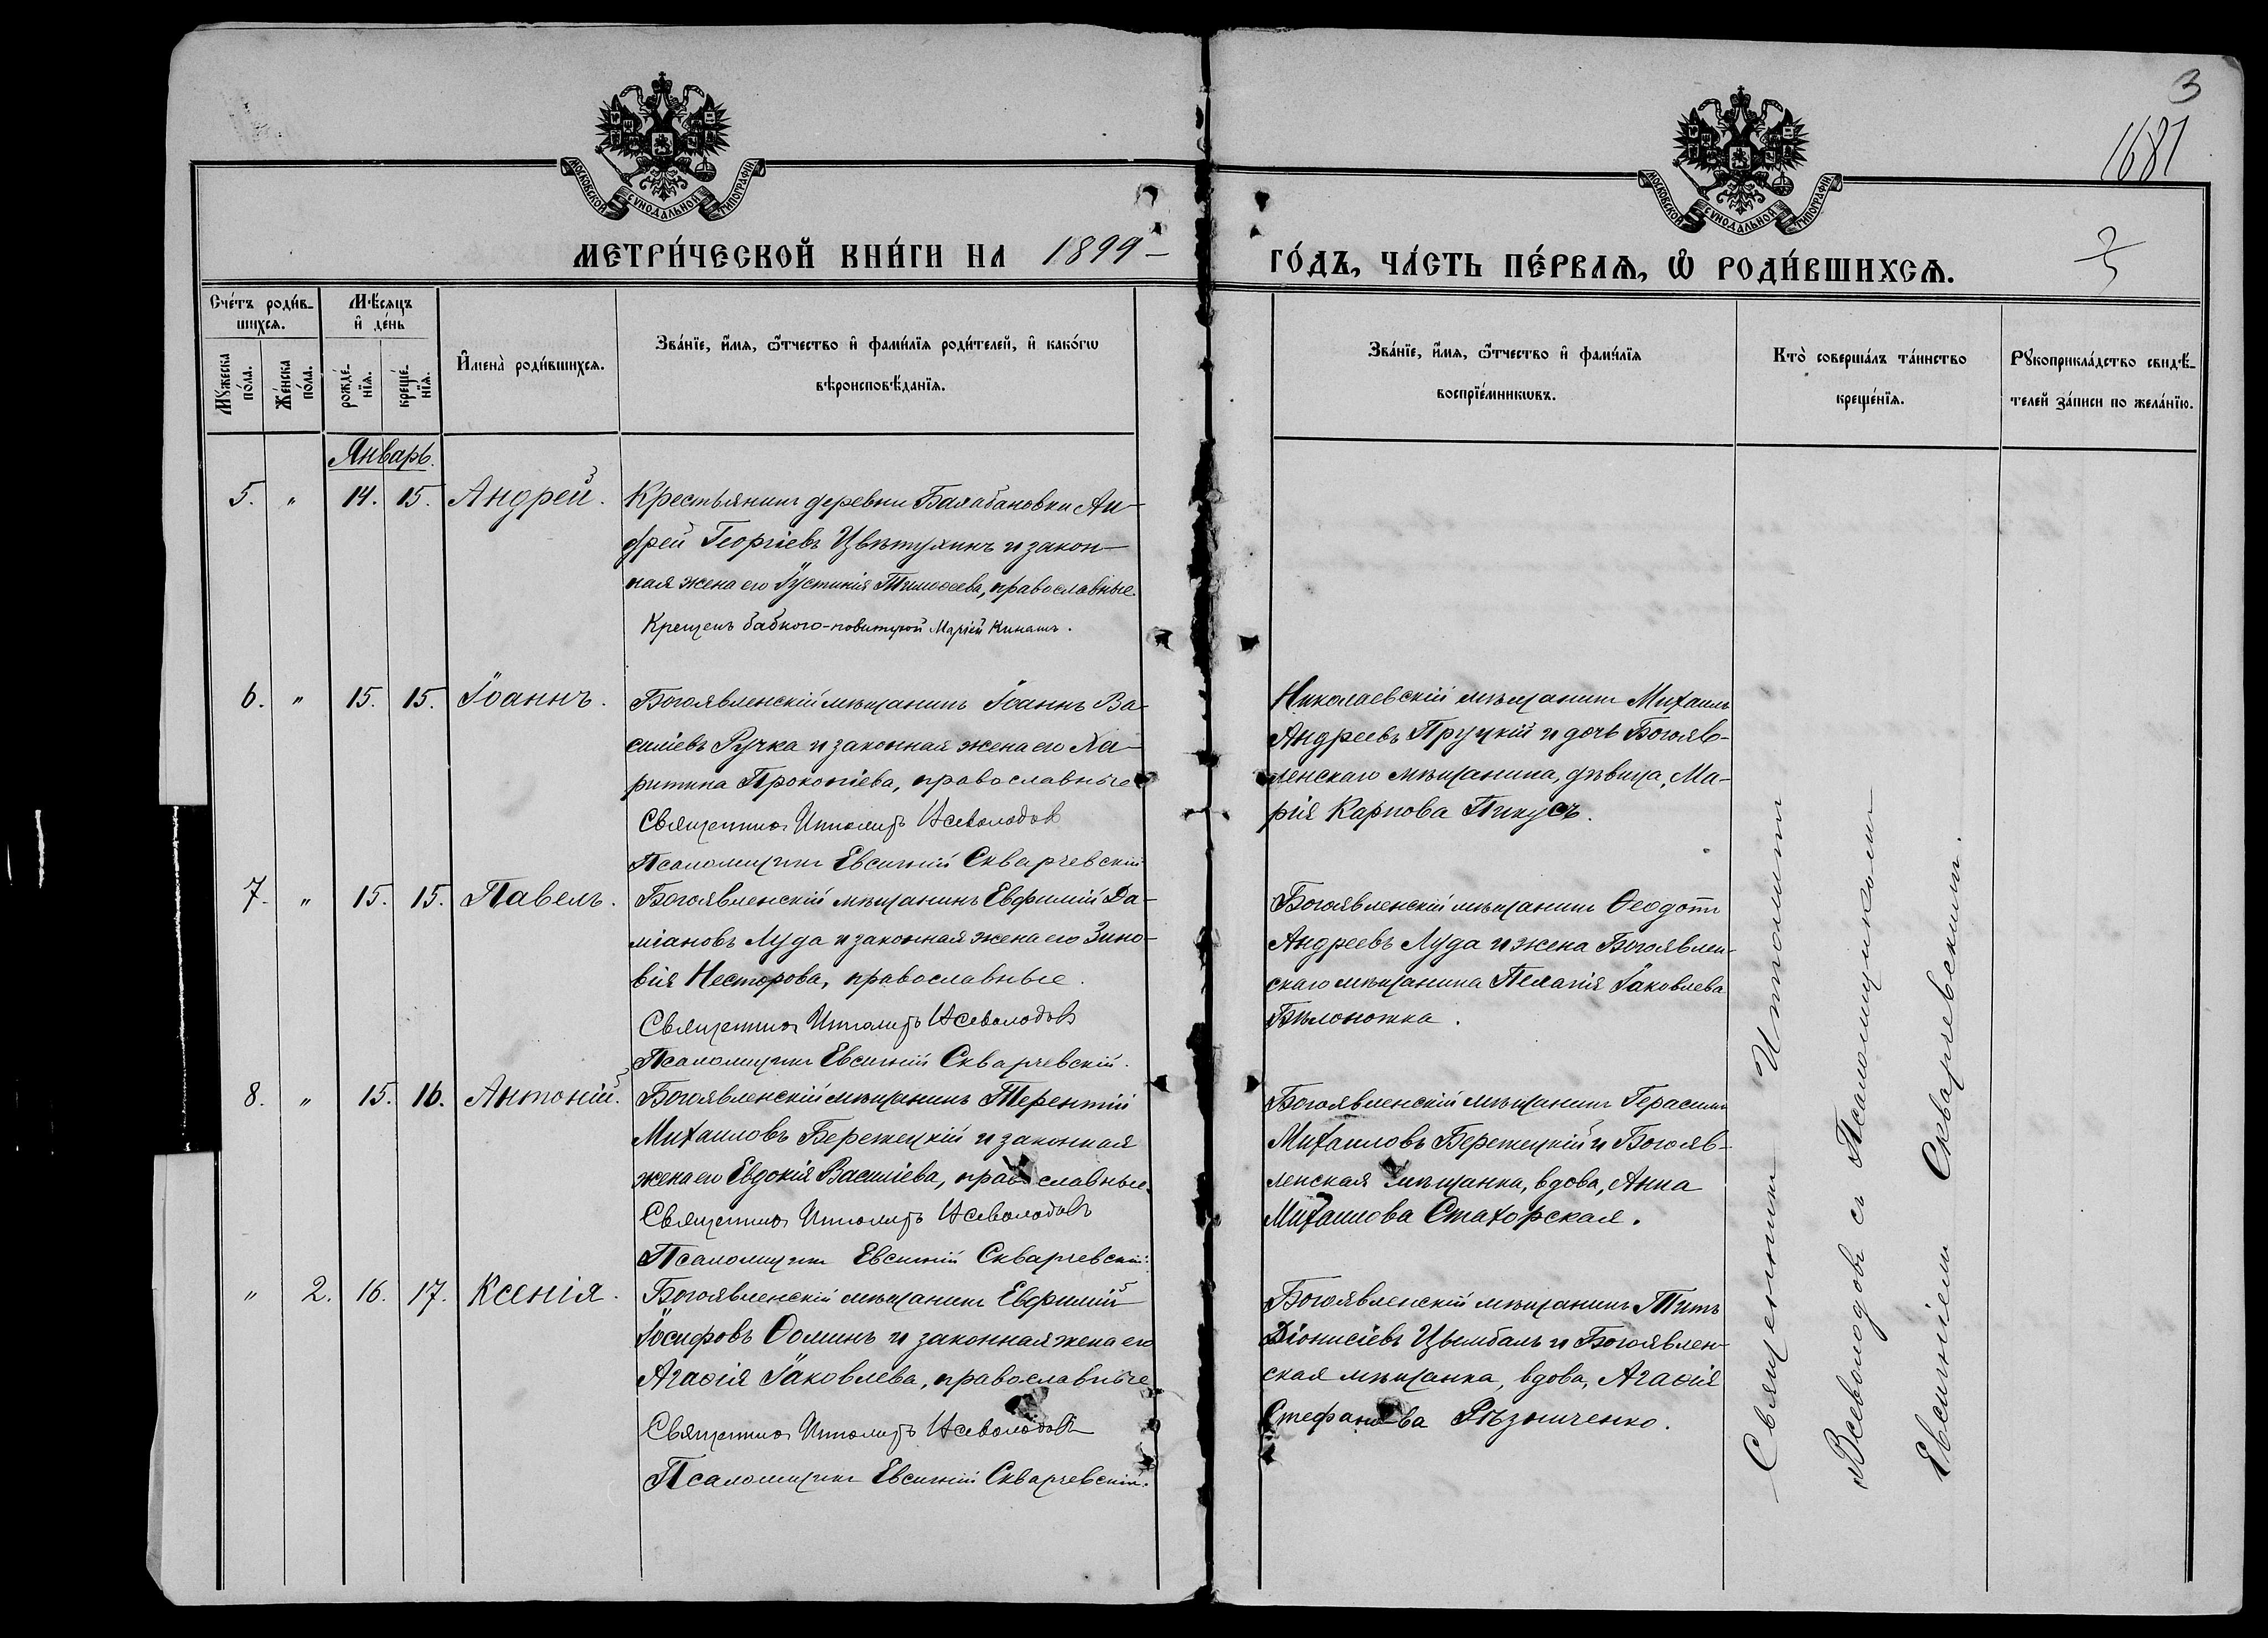 3
1681
3
МОСКОВСКОЙ СУНОДАЛЬНОЙ ТИПОГРАФИИ
МОСКОВСКОЙ СУНОДАЛЬНОЙ ТИПОГРАФИИ
МЕТРИ́ЧЕСКОЙ КНИ́ГИ НА 1899 – ГО́ДЪ, ЧА́СТЬ ПЕ́РВАѦ, Ѡ РОДИ́ВШИХСѦ.
Сче́тъ роди́в-
шихсѧ.
Мꙋ́жеска по́ла.
Же́нска по́ла.
Мѣ́сяцъ
и҆ де́нь
рожде́-
нїѧ.
креще́-
нїѧ.
И҆мена̀ роди́вшихсѧ.
Зва́нїе, и҆́мѧ, ѻ҆́тчество и҆ фами́лїѧ роди́телей, и҆ како́гѡ
вѣроисповѣ́данїѧ.
Зва́нїе, и҆́мѧ, ѻ҆́тчество и҆ фами́лїѧ
воспрїе́мникѡвъ.
Кто̀ соверша́лъ та́инство
креще́нїѧ.
Рꙋкоприкла́дство свидѣ́-
телей за́писи по жела́нїю.
Январь.
5. " 14. 15. Андрей. Крестьянинъ деревни Балабановки Ан-
дрей Георгіевъ Цвѣтухинъ и закон-
ная жена его Іустинія Тимоѳеева, православные.
Крещенъ бабкою-повитухой Маріей Кинашъ.
6. " 15. 15. Іоаннъ. Богоявленскій мѣщанинъ Іоаннъ Ва-
силіевъ Ручка и законная жена его Ха-
ритина Прокопіева, православные
Священникъ Ипполитъ Всеволодовъ
Псаломщикъ Евсигній Скварчевскій
Николаевскій мѣщанинъ Михаилъ
Андреевъ Пруцкій и дочь Богояв-
ленскаго мѣщанина, дѣвица, Ма-
рія Карпова Пикусъ.
7. " 15. 15. Павелъ. Богоявленскій мѣщанинъ Евфимій Да-
міановъ Луда и законная жена его Зино-
вія Несторова, православные.
Священникъ Ипполитъ Всеволодовъ
Псаломщикъ Евсигній Скварчевскій.
Богоявленскій мѣщанинъ Ѳеодотъ
Андреевъ Луда и жена Богоявлен-
скаго мѣщанина Пелагія Іаковлева
Бѣлоножка.
8. " 15. 16. Антоній. Богоявленскій мѣщанинъ Терентій
Михаиловъ Бережецкій и законная
жена его Евдокія Василіева, православные.
Священникъ Ипполитъ Всеволодовъ
Псаломщикъ Евсигній Скварчевскій.
Богоявленскій мѣщанинъ Герасимъ
Михаиловъ Бережецкій и Богояв-
ленская мѣщанка, вдова, Анна
Михаилова Стахорская.
" 2. 16. 17. Ксенія. Богоявленскій мѣщанинъ Евфимій
Іосифовъ Ѳоминъ и законная жена его
Агаѳія Іаковлева, православные
Священникъ Ипполитъ Всеволодовъ
Псаломщикъ Евсигній Скварчевскій.
Богоявленскій мѣщанинъ Титъ
Діонисіевъ Цымбалъ и Богоявлен-
ская мѣщанка, вдова, Агаѳія
Стефанова Рѣзниченко.
Священникъ Ипполитъ
Всеволодовъ съ Псаломщикомъ
Евсигніемъ Скварчевскимъ.